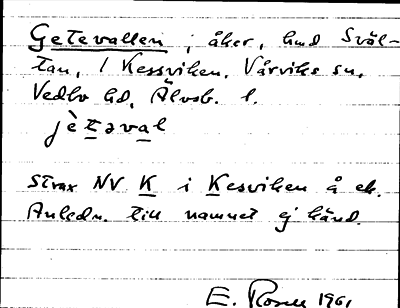 Getevallen, åker, hmd Sväl-
tan, 1 Kessviken, Vårviks sn,
Vedbo hd, Älvsb. l.
jètəval
Strax NV K i Kesviken å ek.
Anledn. till namnet ej känd.
E. Rosell 1961